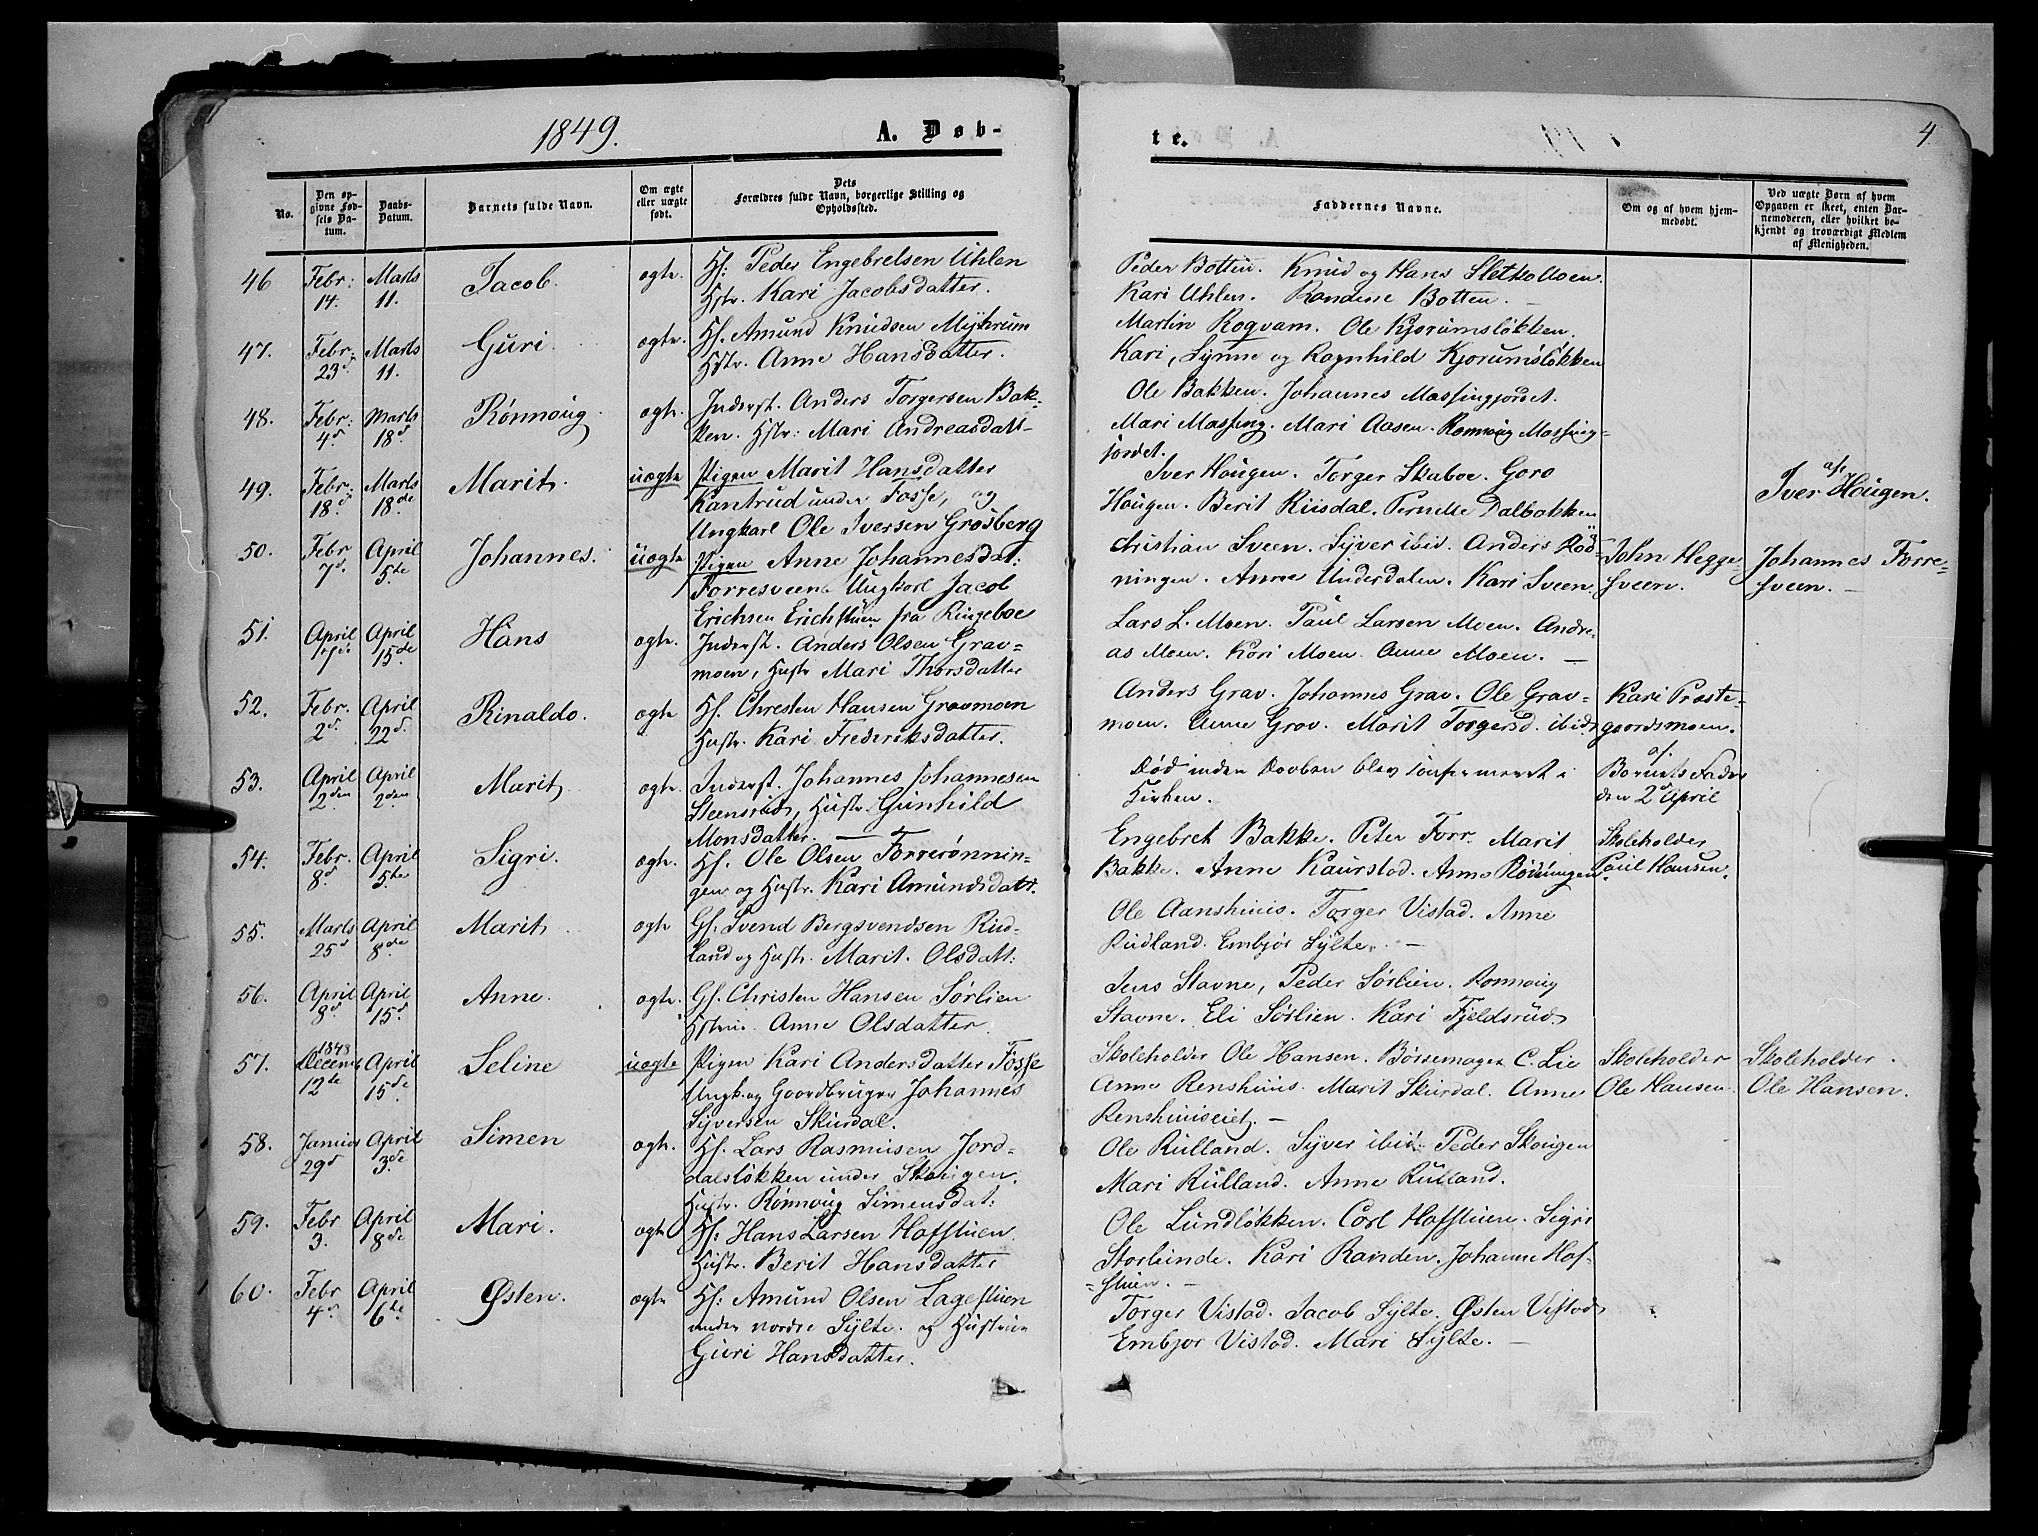 1849. A. Døb-
te. 4
No.
Den op-
givne Fød-
sels Da-
tum.
Daabs-
Datum.
Barnets fulde Navn.
Om ægte
eller uægte
født.
Dets
Forældres fulde Navn, borgerlige Stilling og
Opholdssted.
Faddernes Navne.
Om og af hvem hjem-
medøbt.
Ved uægte Børn af hvem
Opgaven er skeet, enten Bar-
nemoderen, eller hvilket be-
kjendt og troværdigt Medlem
af Menigheden.
46 Febr: 14. Marts 11. Jacob. ægte. Hf: Peder Engebretsen Uhlen
Hstr. Kari Jacobsdatter.
Peder Botten. Knud og Hans Sletkolloen.
Kari Uhlen. Randine Botten. —
47. Febr: 23d Marts 11. Guri ægte. Hf. Amund Knudsen Mykrum
Hstr. Anne Hansdatter.
Martin Rogvam. Ole Kjorumsløkken.
Kari, Synne og Ragnhild Kjorumsløkken
48. Febr: 4d Marts 18d Rønnoug. ægte. Inderst. Anders Torgersen Bak-
ken. Hstr: Mari Andreasdatt-
Ole Bakken. Johannes Massingjordet.
Mari Massing. Mari Aasen. Rønnoug Massing-
jordet.
49. Febr: 18d Marts 18de Marit. uægte Pigen Marit Hansdatter
Kantrud under Fosse, og
Ungkarl Ole Iversen Grosberg
Iver Hougen. Torger Skaboe. Goro
Hougen. Berit Riisdal. Pernelle Dalbakken
af
Iver Hougen.
50. Febr 7d. April 5te Johannes. uægte Pigen Anne Johannesdat:
Forresveen. Ungkarl Jacob
Erichsen Erichstuen fra Ringeboe
Christian Sveen. Syver ibid. Anders Rød-
ningen. Anne Underdalen. Kari Sveen.
John Hegge-
sveen.
Johannes Forre-
sveen. —
51. April April 15de Hans ægte. Inderst. Anders Olsen Grav-
moen, Hustr Mari Thorsdatter
Lars L. Moen. Paul Larsen Moen. Andre-
as Moen. Kari Moen. Anne Moen. —
52. Febr. 2d. April 22d. Rinaldo. ægte Hf. Chresten Hansen Gravmoen
Hustr. Kari Frederiksdatter.
Anders Grav. Johannes Grav. Ole Grav-
moen. Anne Grav. Marit Torgersd. ibid.
Kari Præste-
gaardsmoen.
53. April 2den April 2den Marit ægte. Inderst. Johannes Johannesen
Steensrud, Hustr. Gunhild
Monsdatter. —
Død inden Daaben blev confirmeret i
Kirken.
af.
Barnets Fader
den 2d April
54. Febr. 8d April 5te Sigri. ægte. Hf. Ole Olsen Forrerønnin-
gen og Hustr. Kari Amundsdatt.
Engebret Bakke. Peter Forr. Marit
Bakke. Anne Kaurstad. Anne Rønningen.
Skoleholder
Paul Hansen.
55. Marts 25d April 8de Marit ægte Gf: Svend Bergsvendsen Rud-
land og Hustr. Marit. Olsdatt:
Ole Aanshuus. Torger Vistad. Anne
Rudland. Embjør Sylte. —
56. April 8d April 15d. Anne. ægte. Gf. Christen Hansen Sørlien
Hstrue. Anne Olsdatter.
Jens Stavne, Peder Sørlien. Rønnoug
Stavne. Eli Sørlien. Kari Fjeldsrud.
57. 1848 Decemb 12te April 15de Seline uægte Pigen Kari Andersdatter Fosse
Ungk. og Gaardbruger Johannes
Syversen Skurdal.
Skoleholder Ole Hansen. Børsemager C. Lie
Anne Renshuus. Marit Skurdal. Anne
Renshuuseiet. —
Skoleholder
Ole Hansen
Skoleholder
Ole Hansen.
58. Januar 29d April 3de Simen ægte. Hf. Lars Rasmusen Jord-
dalsløkken under Skougen.
Hustr. Rønnoug Simensdat:
Ole Rulland. Syver ibid. Peder Skougen
Mari Rulland. Anne Rulland.
59. Febr 3. April 8de Mari. ægte Hf: Hans Larsen Hafstuen.
Hustr. Berit Hansdatter
Ole Lundløkken. Carl Hafstuen. Sigri
Storlunde. Kari Randen. Johanne Haf-
stuen. —
60. Febr 4d April 6te Østen. ægte Hf: Amund Olsen Lagestuen
under nordre Sylte. og Hustrue
Guri Hansdatter.
Torger Vistad. Jacob Sylte. Østen Vistad
Embjør Vistad. Mari Sylte. —